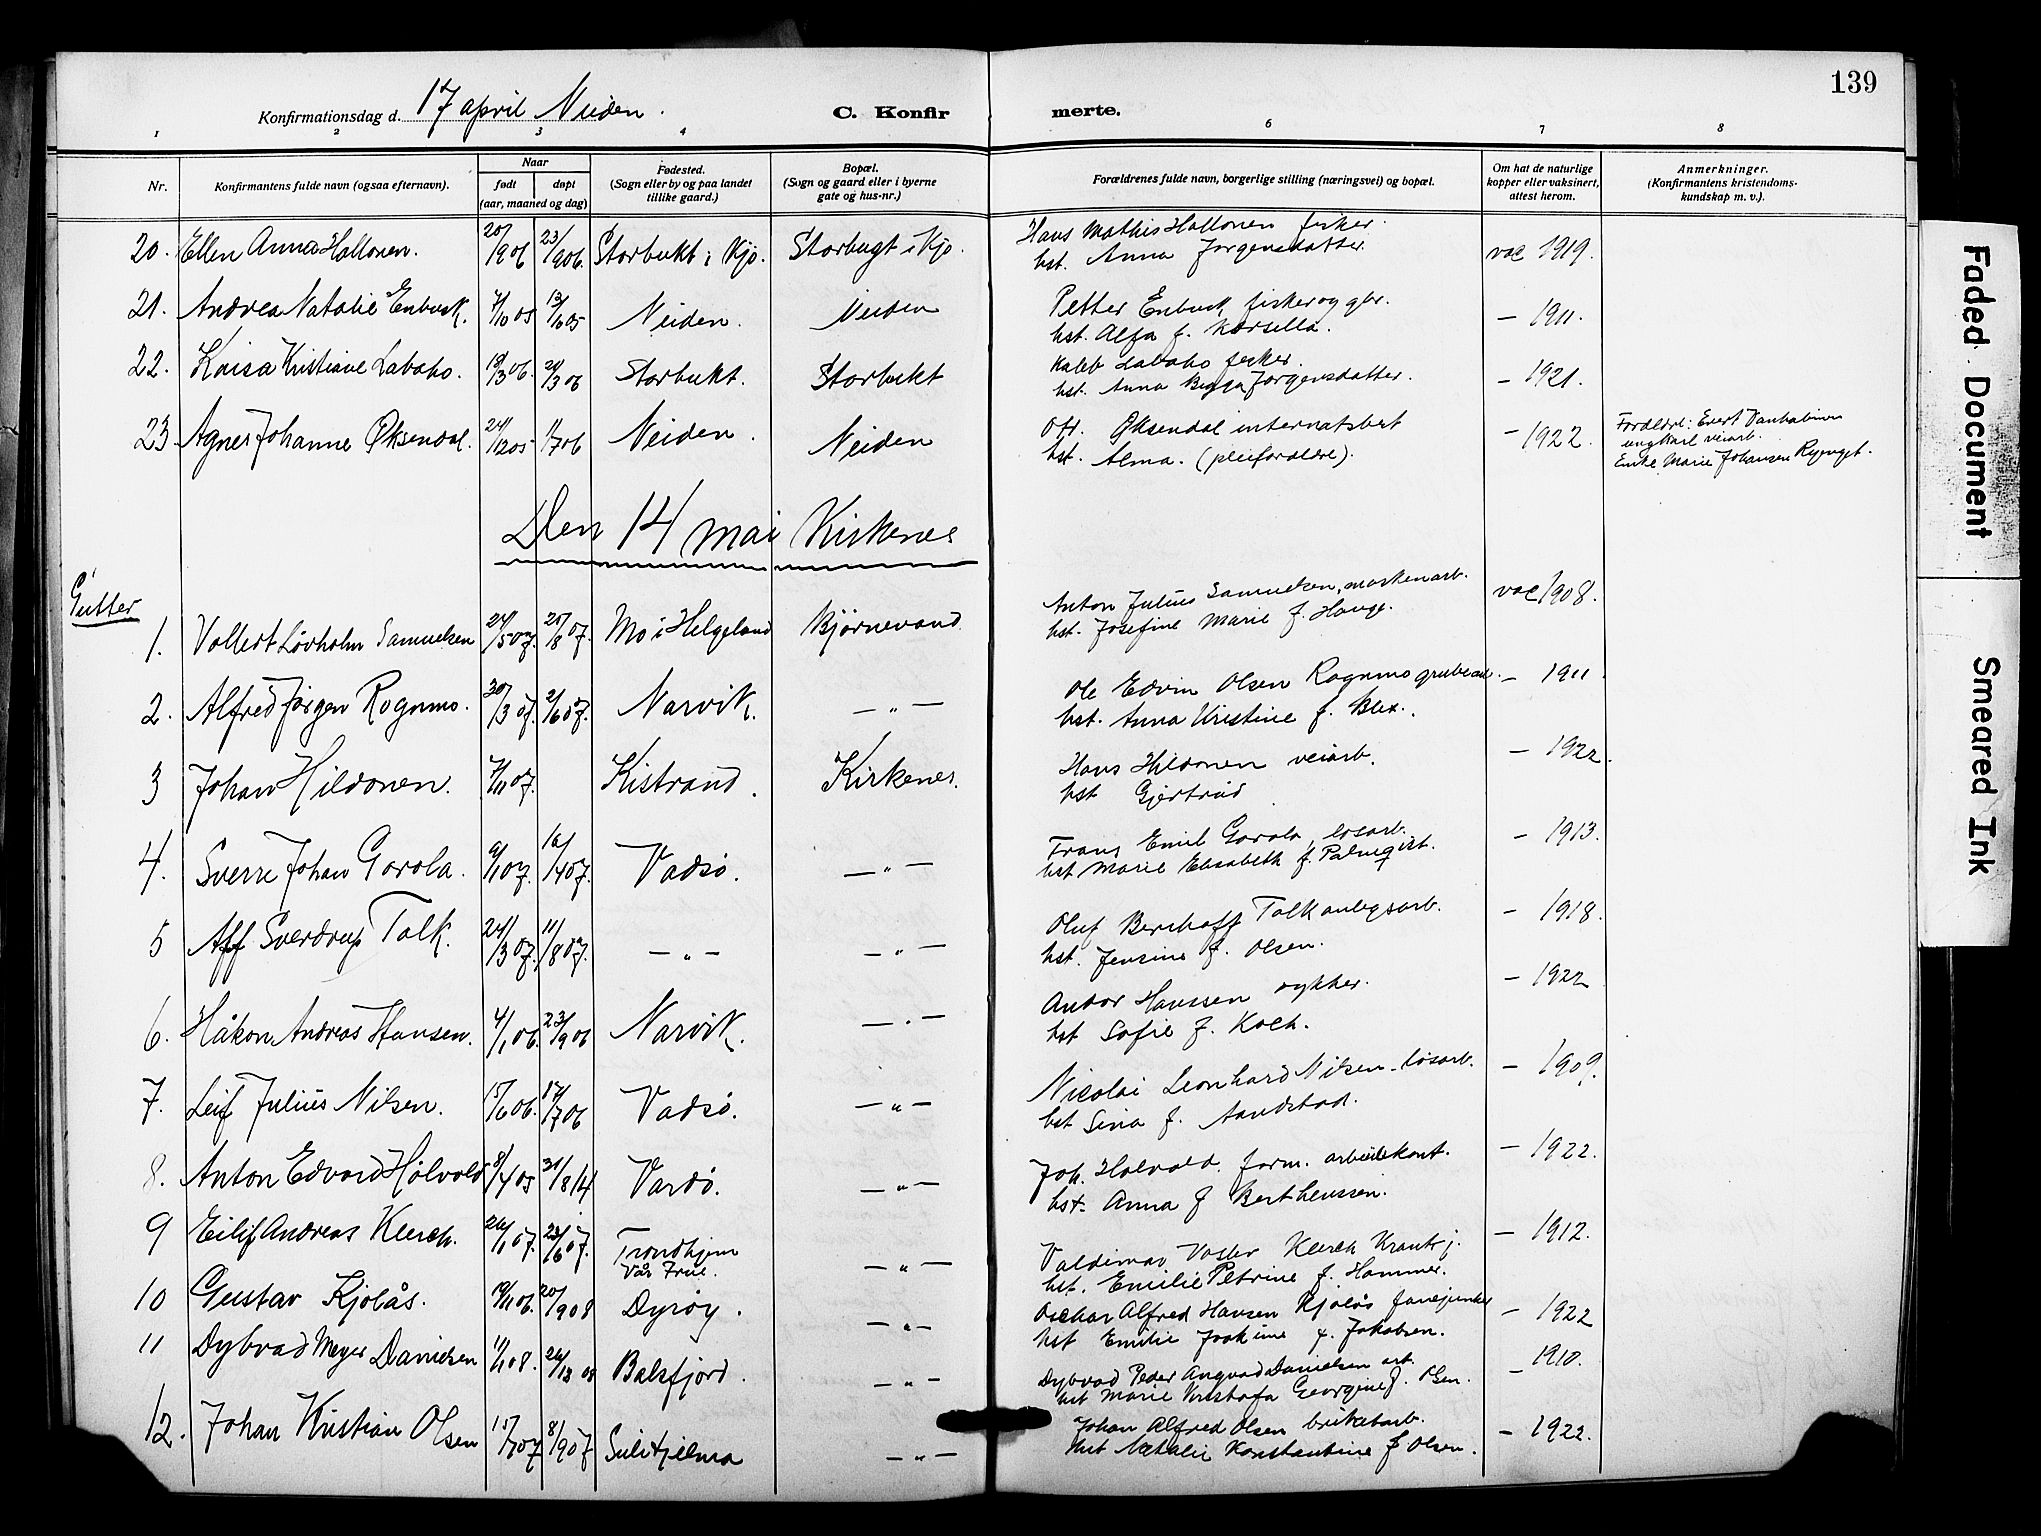 139
Konfirmationsdag d. 17 april Neiden. C. Konfirmerte.
1 2 3 4 6 7 8
Nr. Konfirmantens fulde navn (ogsaa efternavn). Naar født døpt (aar, maaned og dag) Fødested. (Sogn eller by og paa landet tillike gaard.) Bopæl. (Sogn og gaard eller i byerne gate og hus-nr.) Forældrenes fulde navn, borgerlige stilling (næringsvei) og bopæl. Om hat de naturlige kopper eller vaksinert, attest herom. Anmerkninger. (Konfirmantens kristendoms-kundskap m. v.).
20. Ellen Anna Hallonen. 20/906 23/906. Storbukt i Kjø. Storbugt i Kjø. Hans Mathis Hallonen fisker. vac 1919.
hst. Anna Jørgensdatter
21. Andrea Natalie Enbusk. 7/10 05 13/10 05 Neiden. Neiden Petter Enbusk fisker og gbr. — 1911.
hst. Alfa f. Karsella.
22. Kaisa Kristiane Labaho. 19/3 06. 20/3 06 Storbukt. Storbukt Kaleb Labaho fisker. — 1921.
hst. Anna Jørgensdatter.
23 Agnes Johanne Øksendal. 24/12 05 1/7 06 Neiden. Neiden Øksendal internatsbest — 1922. Forældre: Evert Vanhabinen
hst. Alma. (pleiforældre). ungkarl veiarb.
Enke Marie Johansen
Den 14 mai Kirkenes
Gutter
1. Vollert Løvholm Samuelsen 24/5 07. 25/8 07. Mo i Helgeland Bjørnevand Anton Julius Samuelsen, maskenarb. vac 1908.
hst. Josefine Marie f. Hauge.
2. Alfred Jørgen Rognmo. 30/3 07. 2/6 07. Narvik. — " — Ole Edvin Olsen Rognmo grubearb. — 1911
hst. Anna Kristine f. Blix.
3 Johan Hildonen. 7/11 07. Kistrand. Kirkenes. Hans Hildonen veiarb. — 1922.
hst Gjertrud
4. Sverre Johan Gorola. 9/1 07. 16/4 07. Vadsø. — " — Frans Emil Gorola, løsarb. — 1913.
hst Marie Elisabeth f. Palmqvist.
5 Aff Sverdrup Falk. 24/3 07. 11/8 07. — " — — " — Oluf Berchoff Falk anlegsarb. — 1918.
hst. Jensine f. Olsen.
6. Håkon Andreas Hansen. 4/1 06. 23/9 06 Narvik. — " — Andor Hanssen dykker. — 1922
hst Sofie f. Koch.
7. Leif Julius Nilsen. 15/6 06. 17/7 06 Vadsø. — " — Nicolai Leonhard Nilsen løsarb. — 1909.
hst Sina f. Aandstad.
8. Anton Edvard Holvold 8/4 05 31/8 14 Vardø. — " — Joh. Holvold. form. arbeidskont. — 1922.
hst. Anna f Berthenssen.
9 Eilif Andreas Klerck. 26/1 07. 23/6 07. Trondhjem — " — Valdimar Klerck — 1912.
Vår Frue. hst. Emilie Petrine f. Hammer.
10 Gustav Kjølås. 19/11 06. 20/9 08 Dyrøy. — " — Oschar Alfred Hansen Kjølås fanejunker — 1922
hst Emilie Joakime f. Jakobsen.
11 Dybvad Meyer Danielsen 11/1 08. 26/12 08 Balsfjord. — " — Dybvad Peder Angvad Danielsen arb. — 1910.
hst Marie Kristofa Georgine f. Olsen.
12. Johan Kristian Olsen 15/7 07 8/9 07 Sulitjelma — " — Johan Alfred Olsen briketarb. — 1922.
hst Natalie Konstantine f Olsen.
Faded Document
Smeared Ink